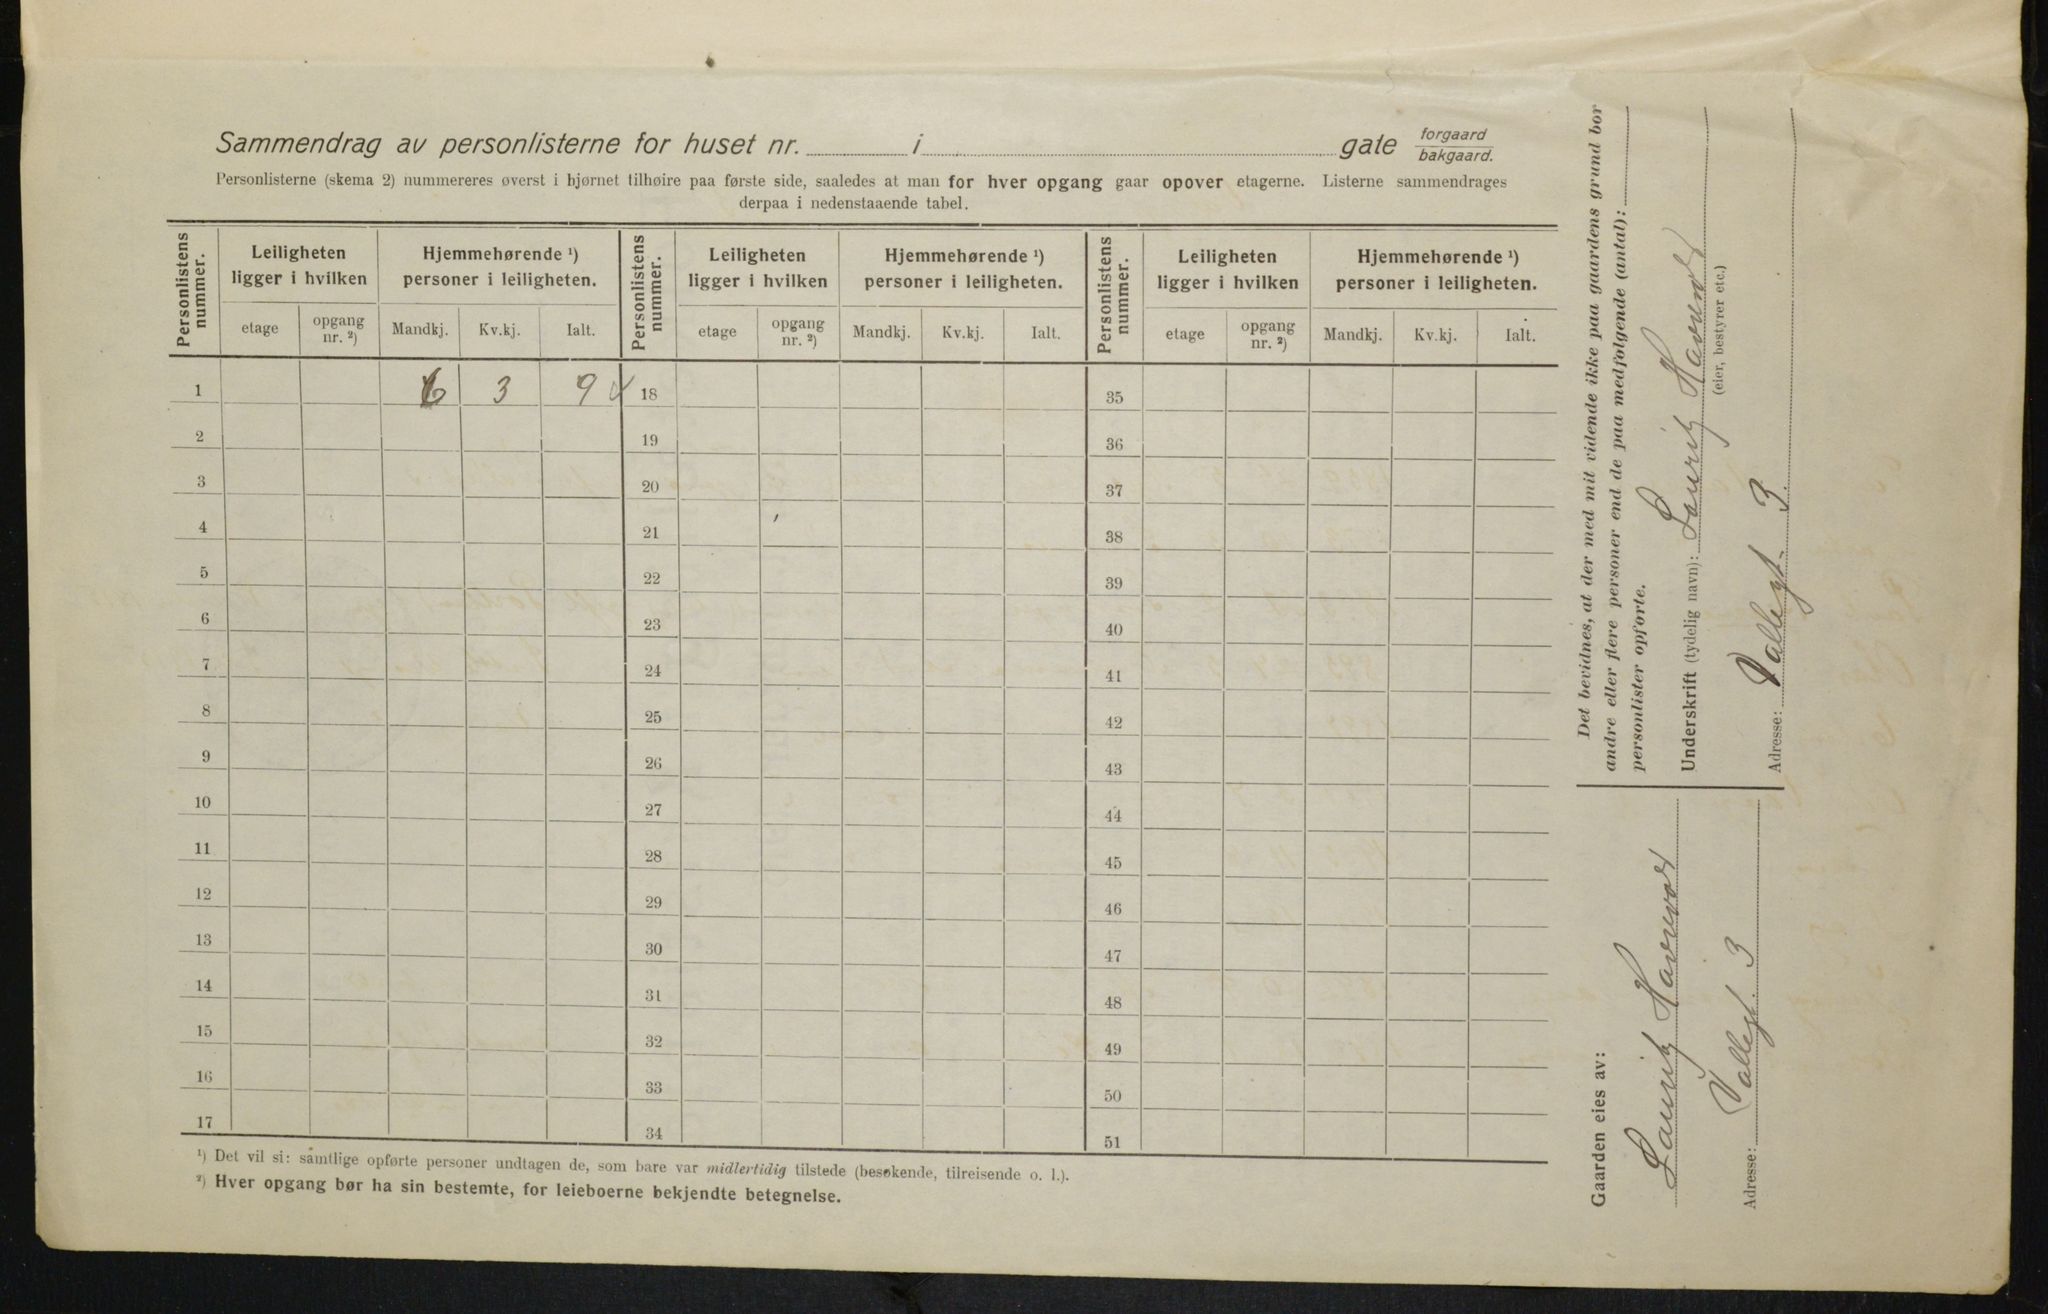 Sammendrag av personlisterne for huset nr. i gate forgaard
bakgaard.
Personlisterne (skema 2) nummereres øverst i hjørnet tilhøire paa første side, saaledes at man for hver opgang gaar opover etagerne. Listerne sammendrages
derpaa i nedenstaaende tabel.
Personlistens nummer. Leiligheten ligger i hvilken Hjemmehørende ¹) personer i leiligheten. Personlistens nummer. Leiligheten ligger i hvilken Hjemmehørende ¹) personer i leiligheten. Personlistens nummer. Leiligheten ligger i hvilken Hjemmehørende ¹) personer i leiligheten.
etage opgang nr. ²) Mandkj. Kv.kj. Ialt. etage opgang nr. ²) Mandkj. Kv.kj. Ialt. etage opgang nr. ²) Mandkj. Kv.kj. Ialt.
1 6 3 9 18 35
2 19 36
3 20 37
4 21 38
5 22 39
6 23 40
7 24 41
8 25 42
9 26 43
10 27 44
11 28 45
12 29 46
13 30 47
14 31 48
15 32 49
16 33 50
17 34 51
¹) Det vil si: samtlige opførte personer undtagen de, som bare var midlertidig tilstede (besøkende, tilreisende o. l.).
²) Hver opgang bør ha sin bestemte, for leieboerne bekjendte betegnelse.
Det bevidnes, at der med mit vidende ikke paa gaardens grund bor
andre eller flere personer end de paa medfølgende (antal):
personlister opførte.
Underskrift (tydelig navn): Lauritz
(eier, bestyrer etc.)
Adresse: Vallegt. 3.
Gaarden eies av:
Lauritz
Adresse: Vallegt. 3